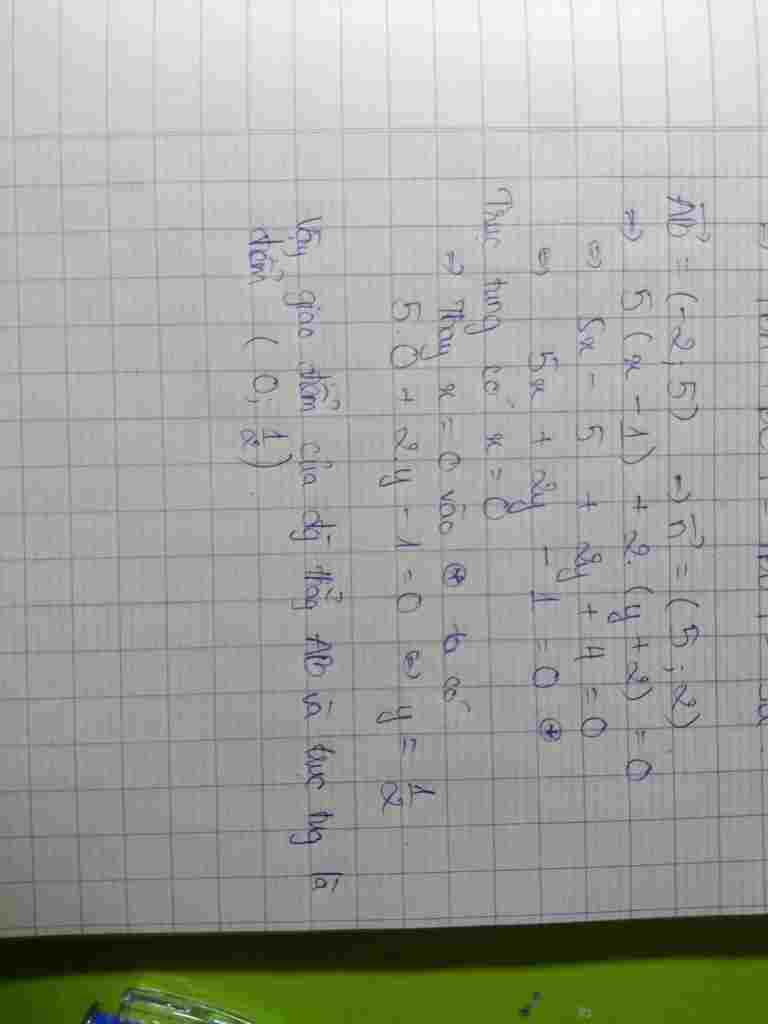 AB = (-2; 5) → n = (5; 2)
⇒ 5(x - 1) + 2.(y + 2) = 0
⇔ 5x - 5 + 2y + 4 = 0
⇔ 5x + 2y - 1 = 0 ⊛
Trục tung có x = 0
⇒ Thay x = 0 vào ⊛ ta có
5.0 + 2.y - 1 = 0 ⇔ y = 1/2
Vậy giao điểm của đg thẳng AB và trục tung là
điểm (0; 1/2)